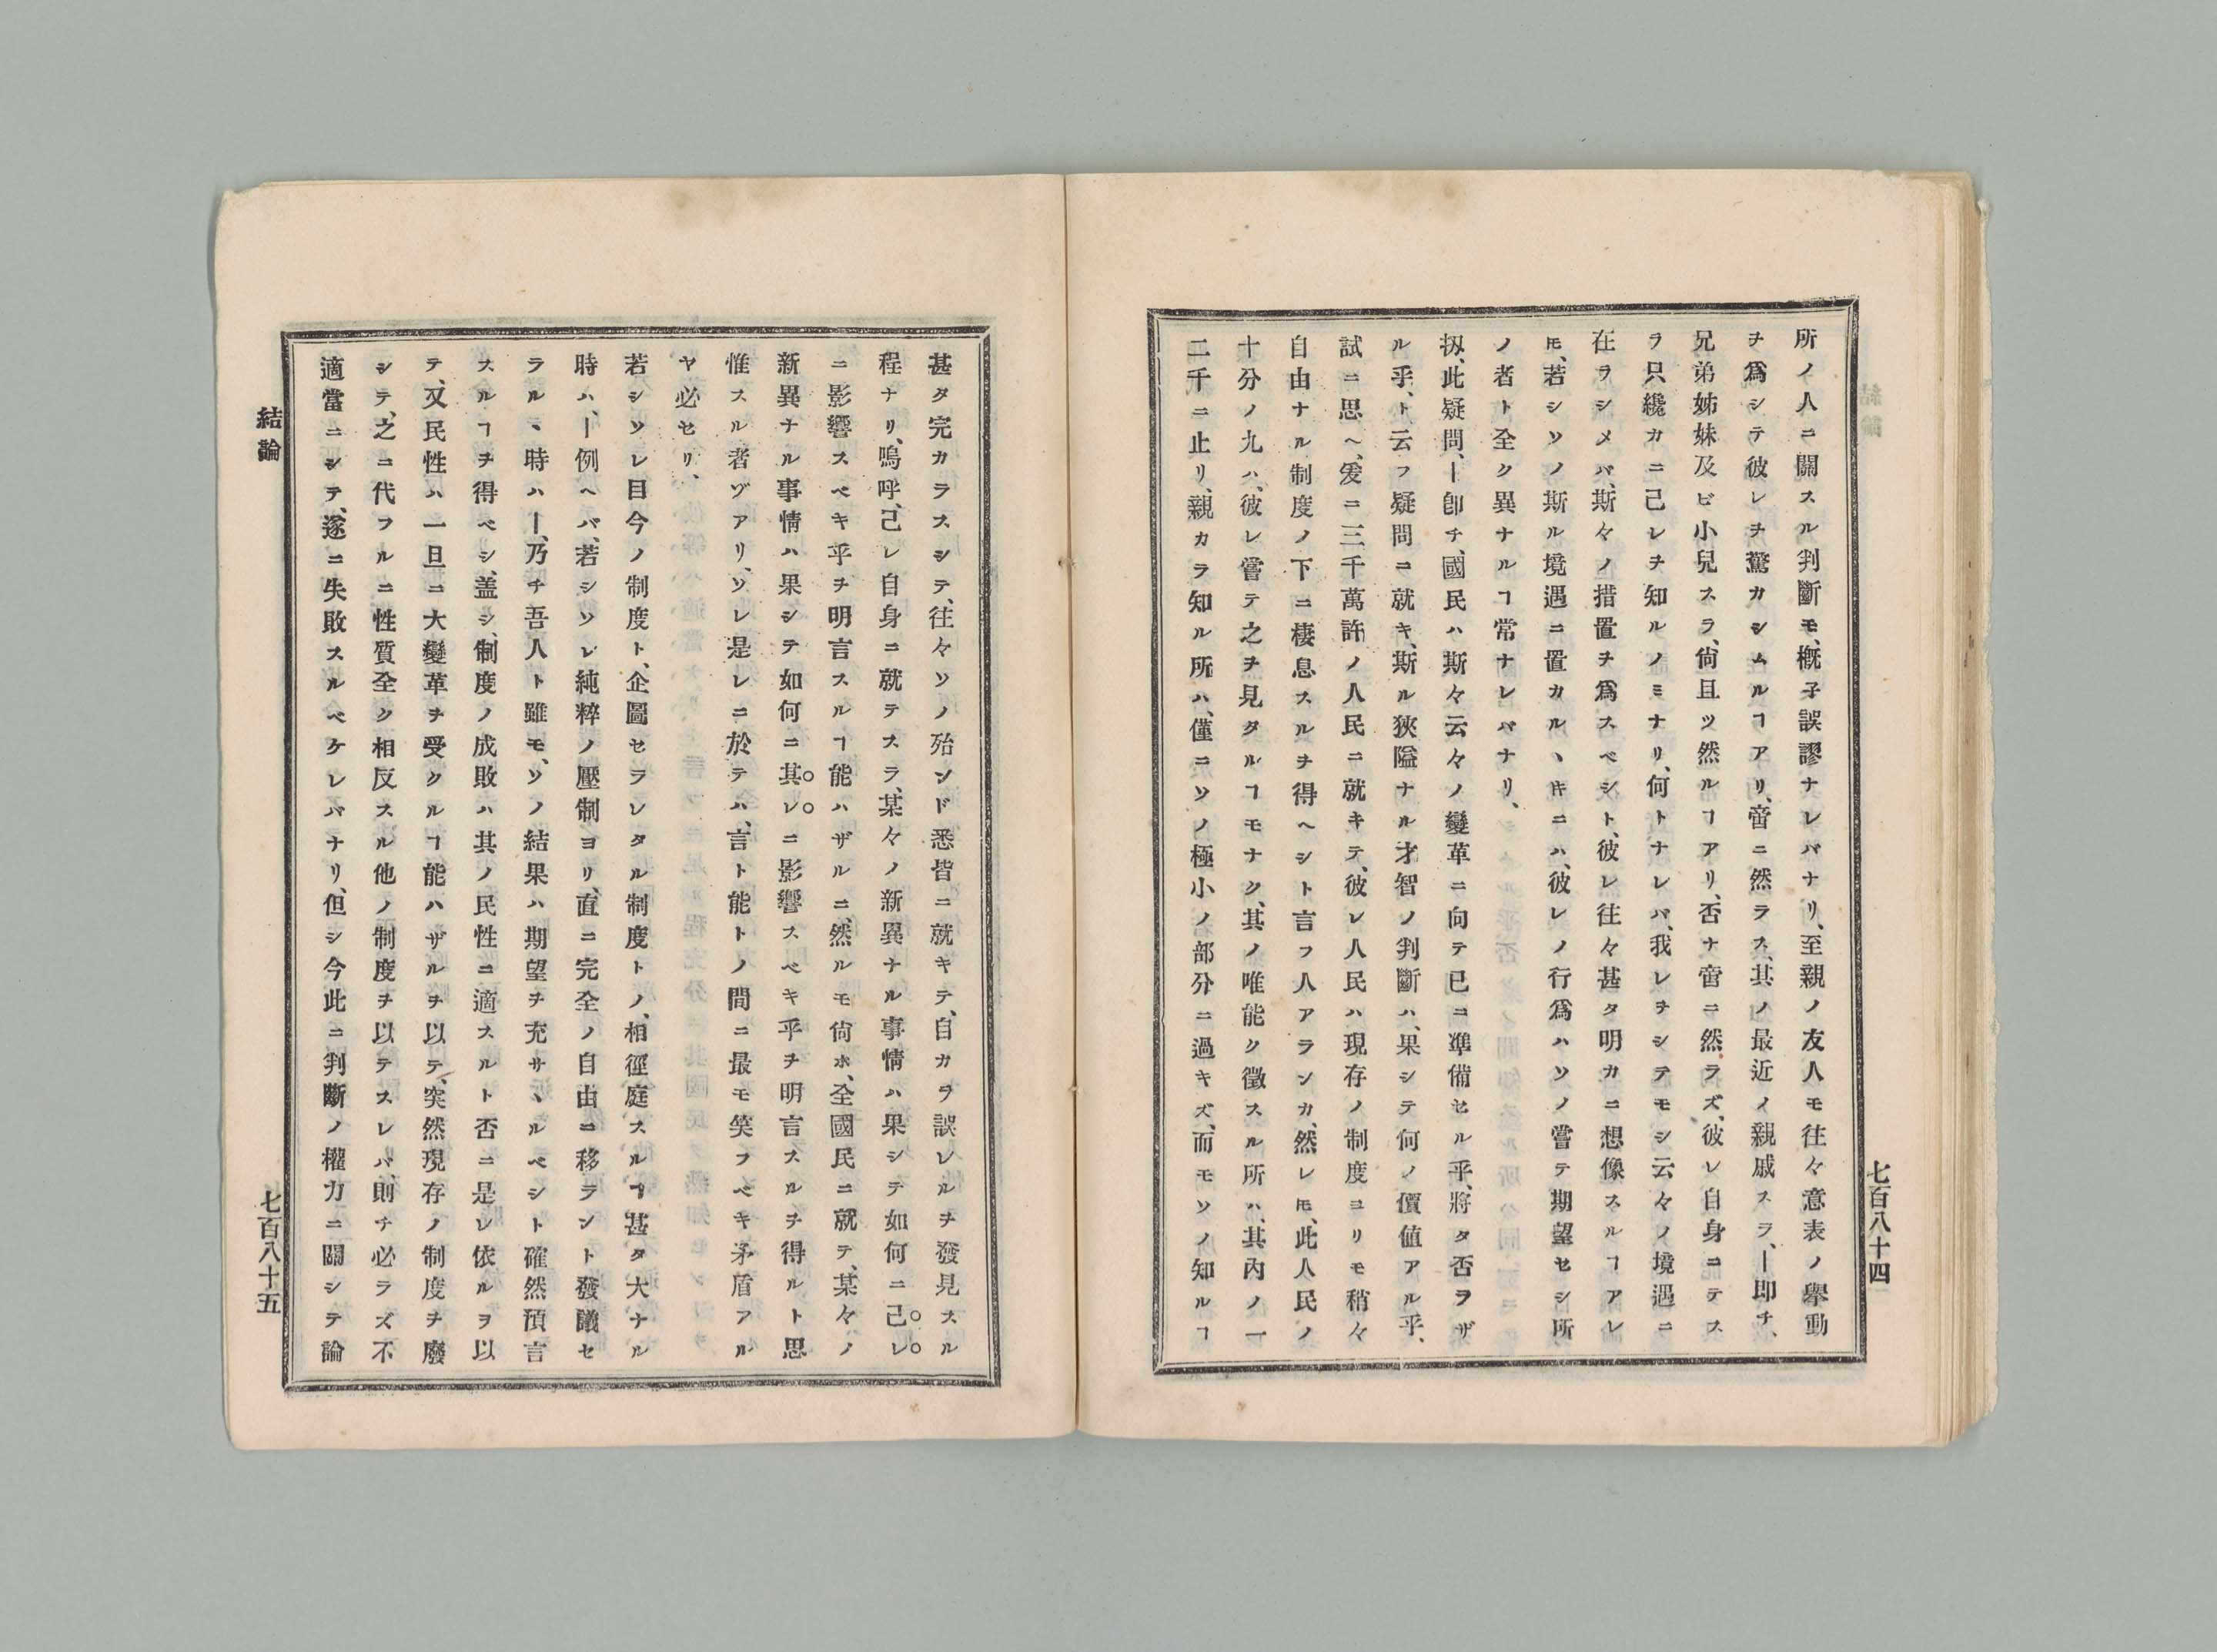 七百八十四
所ノ人ニ關スル判斷モ、概子誤謬ナレバナリ、至親ノ友人モ往々意表ノ舉動
ヲ爲シテ彼レヲ驚カシムルヿアリ、啻ニ然ラス、其ノ最近ノ親戚スラ、―即チ、
兄弟姊妹及ビ小兒スラ、尙且ツ然ルヿアリ、否ナ啻ニ然ラズ、彼レ自身ニテス
ラ只纔カニ己レヲ知ルノミナリ、何トナレバ、我レヲシテモシ云々ノ境遇ニ
在ラシメバ、斯々ノ措置ヲ爲スベシト、彼レ往々甚タ明カニ想像スルヿアレ
𪜈、若シソノ斯ル境遇ニ置カルヽ𪜈ニハ、彼レノ行爲ハソノ嘗テ期望セシ所
ノ者ト全ク異ナルヿ常ナレバナリ、
扨、此疑問、―卽チ、國民ハ斯々云々ノ變革ニ向テ已ニ凖備セル乎、將タ否ヲザ
ル乎、ト云フ疑問ニ就キ、斯ル狹隘ナル才智ノ判斷ハ、果シテ何ノ價値アル乎、
試ニ思ヘ、爰ニ三千萬許ノ人民ニ就キテ、彼レ人民ハ現存ノ制度ヨリモ稍々
自由ナル制度ノ下ニ棲息スルヲ得ヘシト言フ人アランカ、然レ𪜈、此人民ノ
十分ノ九ハ、彼レ嘗テ之ヲ見タルヿモナク、其ノ唯能ク徵スル所ハ、其內ノ一
二千ニ止リ、親カラ知ル所ハ、僅ニソノ極小ノ部分ニ過キズ、而モソノ知ルヿ
甚タ完カラスシテ、往々ソノ殆ンド悉皆ニ就キテ、自カラ誤レルヲ發見スル
程ナリ、嗚呼、己レ自身ニ就テスラ、某々ノ新異ナル事情ハ果シテ如何ニ己レ
ニ影響スベキ乎ヲ明言スルヿ能ハザルニ、然ルモ尙ホ、全國民ニ就テ、某々ノ
新異ナル事情ハ果シテ如何ニ其レニ影響スベキ乎ヲ明言スルヲ得ルト思
惟スル者ゾアリ、ソレ是レニ於テハ、言ト能トノ間ニ最モ笑フベキ矛盾アル
ヤ必セリ、
若シソレ目今ノ制度ト、企圖セラレタル制度トノ、相徑庭スルヿ甚タ大ナル
時ハ、―例ヘバ、若シソレ純粹ノ壓制ヨリ、直ニ完全ノ自由ニ移ラント發議セ
ラルヽ時ハ―、乃チ吾人ト雖モ、ソノ結果ハ期望ヲ充サヽルベシト確然預言
スルヿヲ得ベシ、盖シ、制度ノ成敗ハ其ノ民性ニ適スルト否ニ是レ依ルヲ以
テ、又民性ハ一旦ニ大變革ヲ受クルヿ能ハザルヲ以テ、突然現存ノ制度ヲ廢
シテ、之ニ代フルニ性質全ク相反スル他ノ制度ヲ以テスレバ、則チ必ラズ不
適當ニシテ、遂ニ失敗スルベケレバナリ、但シ今此ニ判斷ノ權力ニ關シテ論
結論
七百八十五